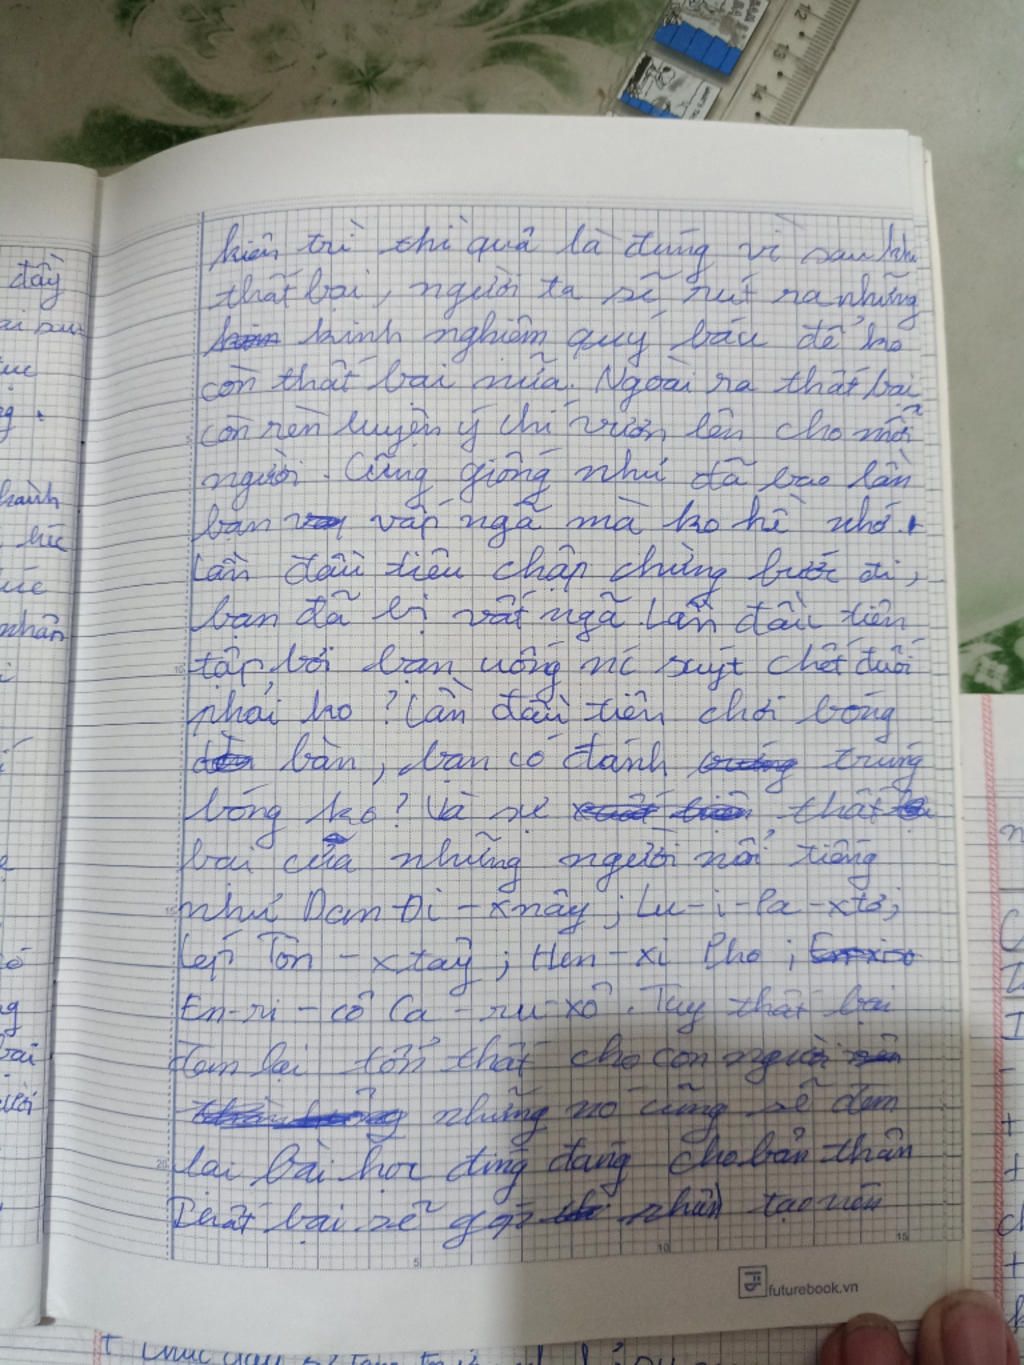 đầy
kiên trì thì quả là đúng vì sau khi
thất bại, người ta sẽ rút ra những
kinh nghiệm quý báu để ko
còn thất bại nữa. Ngoài ra thất bại
còn rèn luyện ý chí vươn lên cho mỗi
người. Cũng giống như đã bao lần
bạn vấp ngã mà ko hề nhớ.
Lần đầu tiên chập chững bước đi,
bạn đã bị vất ngã. Lần đầu tiên
tập bơi bạn uống nc suýt chết đuối
phải ko? Lần đầu tiên chơi bóng
bàn, bạn có đánh trúng
bóng ko? Và sự thất
bại của những người nổi tiếng
như Oan-Đi-xnây; Lu-i-Pa-xtơ;
Lep Tôn-xtôy; Hen-ri Pho;
En-ri-cô Ca-ru-xô. Tuy thất bại
đem lại tổn thất cho con người
nhưng nó cũng sẽ đem
lại bài học đúng đắng cho bản thân
Thất bại sẽ góp phần tạo nên
5
10
15
20
5
10
15
futurebook.vn
12
13
14